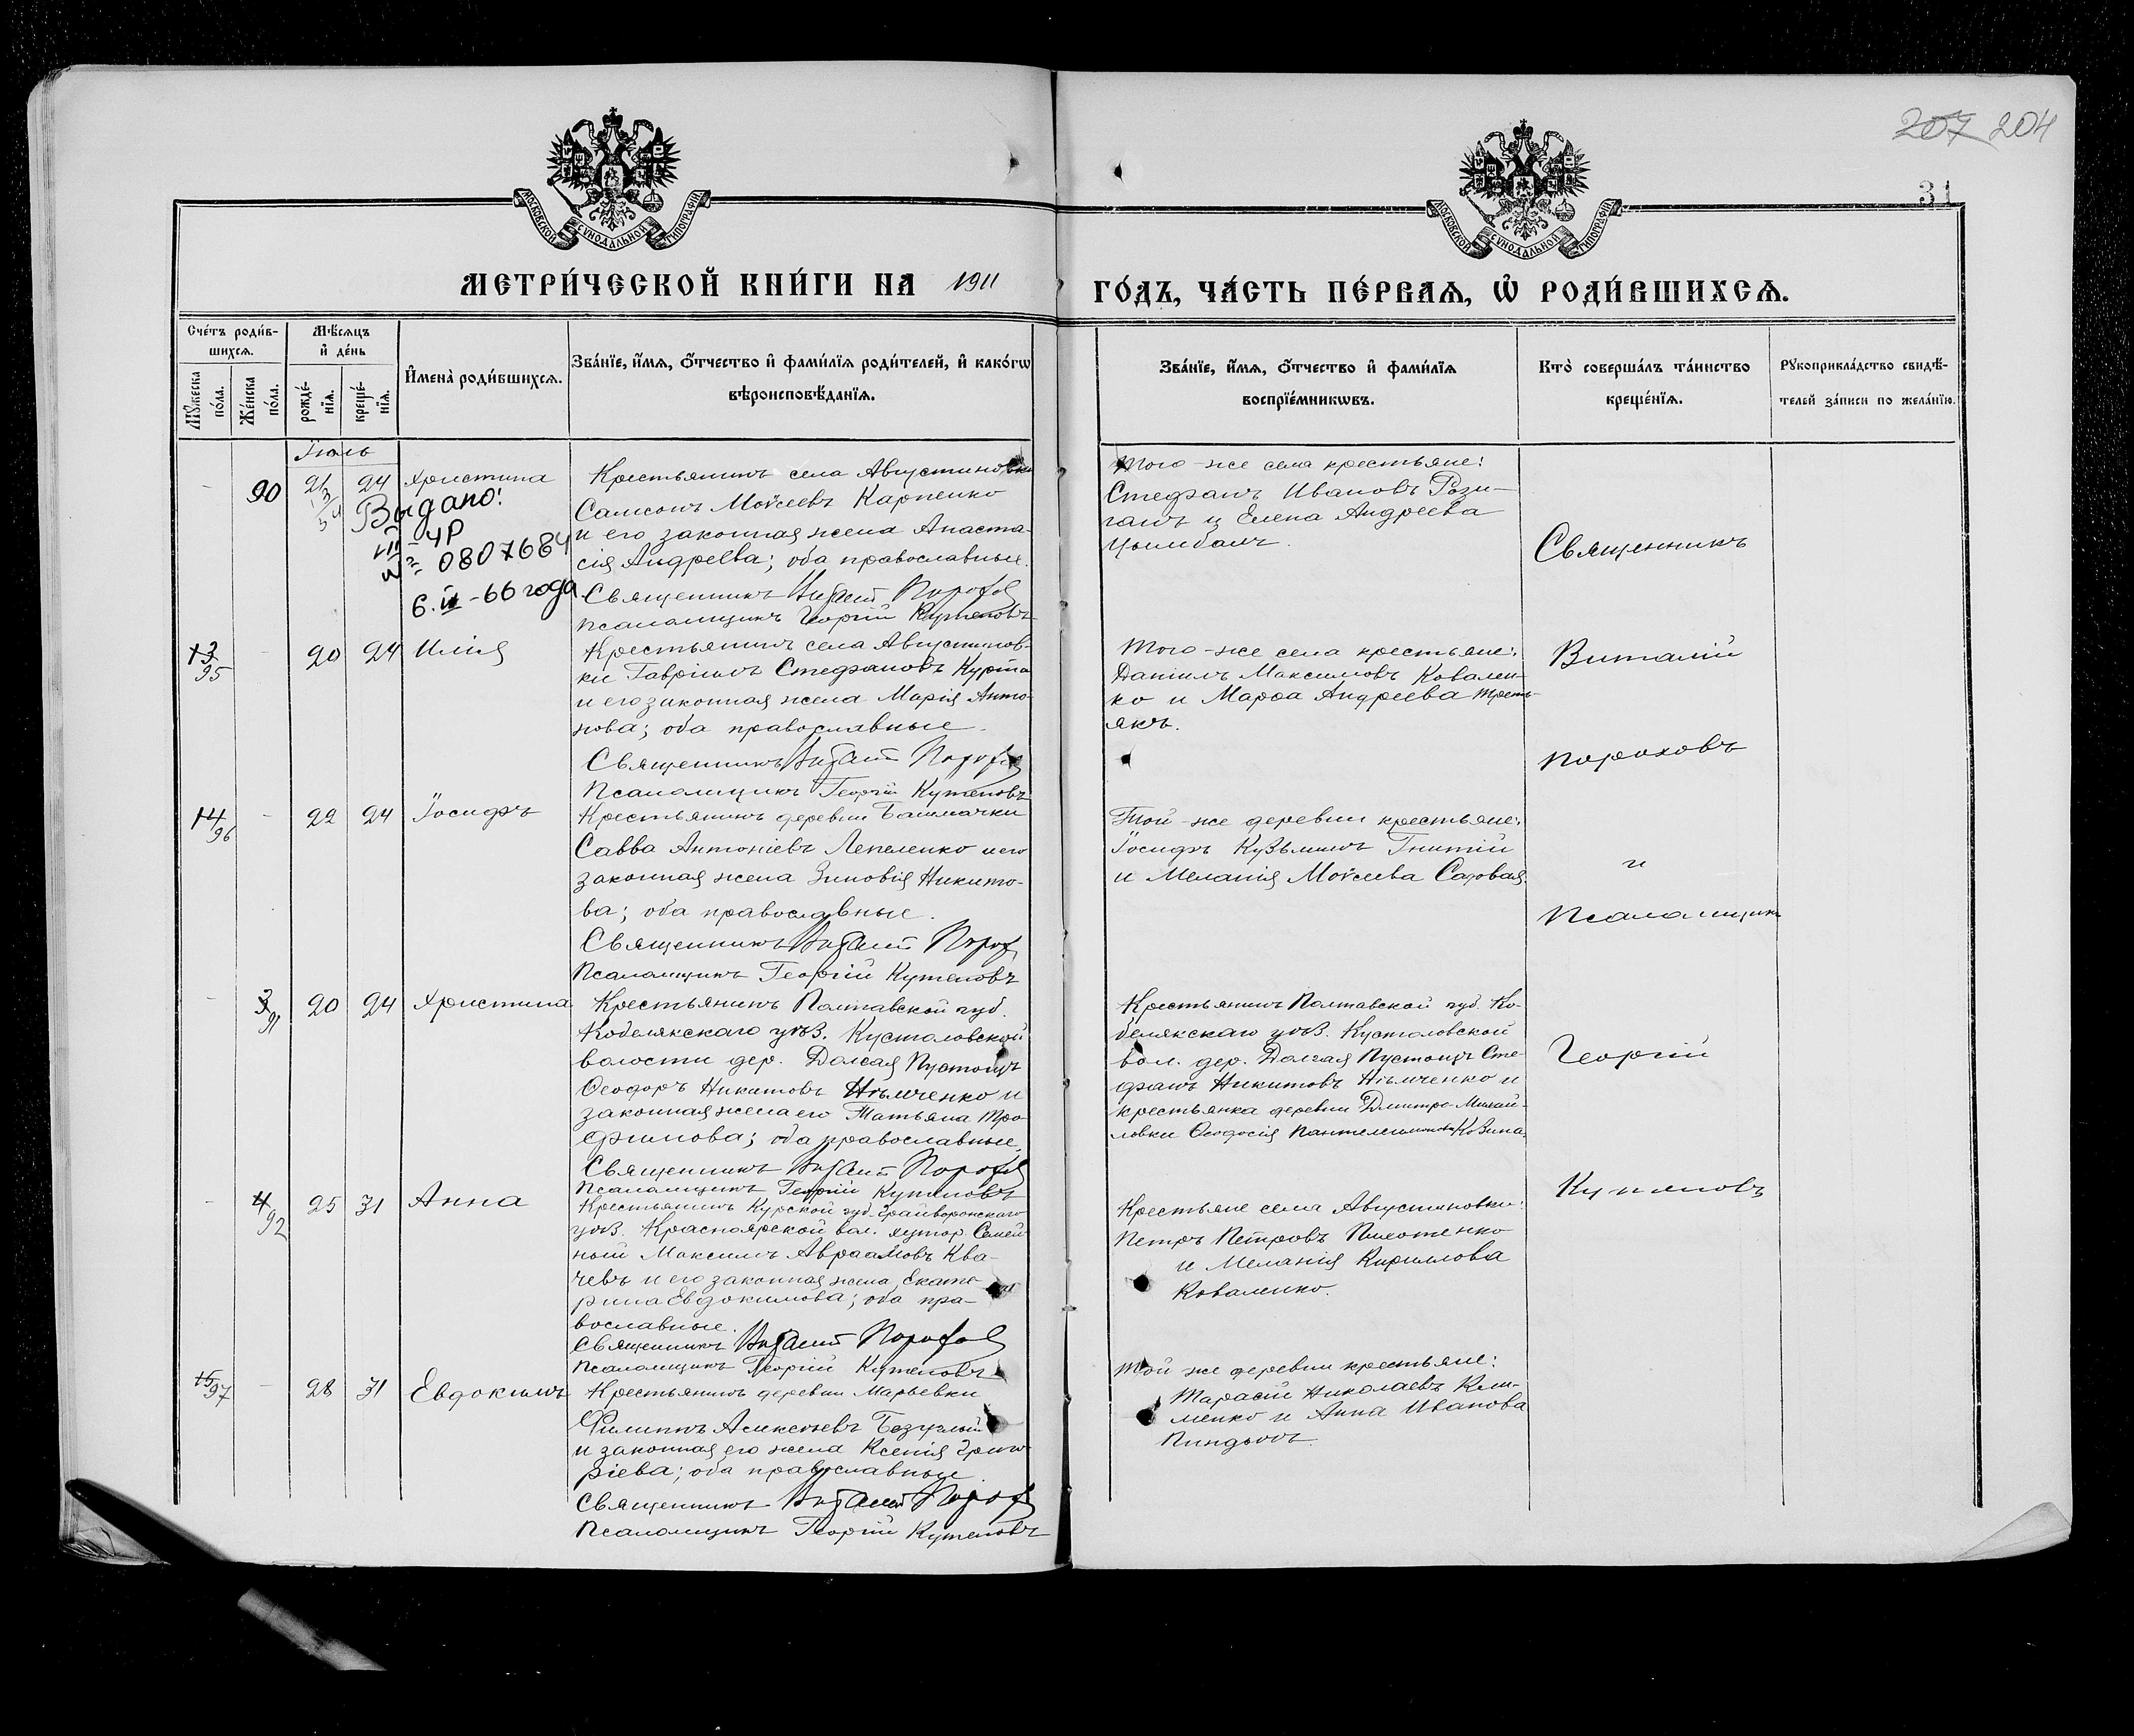 207 204
31
МОСКОВСКОЙ СѴНОДАЛЬНОЙ ТИПОГРАФІИ
МОСКОВСКОЙ СѴНОДАЛЬНОЙ ТИПОГРАФІИ
МЕТРИ́ЧЕСКОЙ КНИ́ГИ НА 1911 ГО́ДЪ, ЧА́СТЬ ПЕ́РВАѦ, Ѡ҆ РОДИ́ВШИХСѦ.
Сче́тъ роди́в-
шихсѧ.
Мꙋ́жеска по́ла.
Же́нска по́ла.
Мѣ́сѧцъ
и҆ де́нь
рожде́-
нїѧ.
креще́-
нїѧ.
И҆мена̀ роди́вшихсѧ.
Зва́нїе, и҆́мѧ, ѻ҆́тчество и҆ фами́лїѧ роди́телей, и҆ како́гѡ
вѣроисповѣ́данїѧ.
Зва́нїе, и҆́мѧ, ѻ҆́тчество и҆ фами́лїѧ
воспрїе́мникѡвъ.
Кто̀ соверша́лъ та́инство
креще́нїѧ.
Рꙋкоприкла́дство свидѣ́-
телей за́писи по жела́нїю.
Іюль
- 90 21 24 Христина
Выдано:
VIII - ЧР
№ 0807684
6.II-66 года
Крестьянинъ села Августиновки
Самсонъ Моѵсеевъ Карпенко
и его законная жена Анаста-
сія Андреева; оба православные.
Священникъ Виталій Порохов
Псаломщикъ Георгій Кутеповъ
Того-же села крестьяне:
Стефанъ Ивановъ Рози-
ганъ и Елена Андреева
Цымбалъ.
13 95 - 20 24 Илія
Крестьянинъ села Августинов-
ки Гавріилъ Стефановъ Курта
и его законная жена Марія Анто-
нова; оба православные.
Священникъ Виталій Порохов
Псаломщикъ Георгій Кутеповъ
Того-же села крестьяне:
Даніилъ Максимовъ Ковален-
ко и Марѳа Андреева Треть-
якъ.
14 96 - 22 24 Іосифъ
Крестьянинъ деревни Башмачки
Савва Антоніевъ Лепеленко и его
законная жена Зиновія Никито-
ва; оба православные.
Священникъ Виталій Порох
Псаломщикъ Георгій Кутеповъ
Той-же деревни крестьяне:
Іосифъ Кузьминъ Гнитій
и Меланія Моѵсеева Садовая.
- 3 91 20 24 Христина
Крестьянинъ Полтавской губ.
Кобелякскаго уѣз. Кустоловской
волости дер. Долгая Пустошь
Ѳеодоръ Никитовъ Нѣмченко и
законная жена его Татьяна Тро-
фимова; оба православные.
Священникъ Виталій Порохов
Псаломщикъ Георгій Кутеповъ
Крестьянинъ Полтавской губ. Ко-
белякскаго уѣз. Кустоловской
вол. дер. Долгая Пустошь Сте-
фанъ Никитовъ Нѣмченко и
крестьянка деревни Дмитро-Михай-
ловки Ѳеодосія Пантелеимонова Козина.
- 4 92 25 31 Анна
Крестьянинъ Курской губ. Грайворонскаго
уѣз. Красноярской вол. хутор. Семей
ный Максимъ Авраамовъ Ква-
чевъ и его законная жена Екате-
рина Евдокимова; оба пра-
вославные.
Священникъ Виталій Порохов
Псаломщикъ Георгій Кутеповъ
Крестьяне села Августиновки:
Петръ Петровъ Пилотенко
и Меланія Кириллова
Коваленко.
15 97 - 28 31 Евдокимъ
Крестьянинъ деревни Марьевки
Филиппъ Алексѣевъ Безуглый
и законная его жена Ксенія Григо-
ріева; оба православные.
Священникъ Виталій Порох
Псаломщикъ Георгій Кутеповъ
Той же деревни крестьяне:
Тарасій Николаевъ Кли-
менко и Анна Иванова
Пиндюкъ.
Священникъ
Виталій
Пороховъ
и
Псаломщикъ
Георгій
Кутеповъ